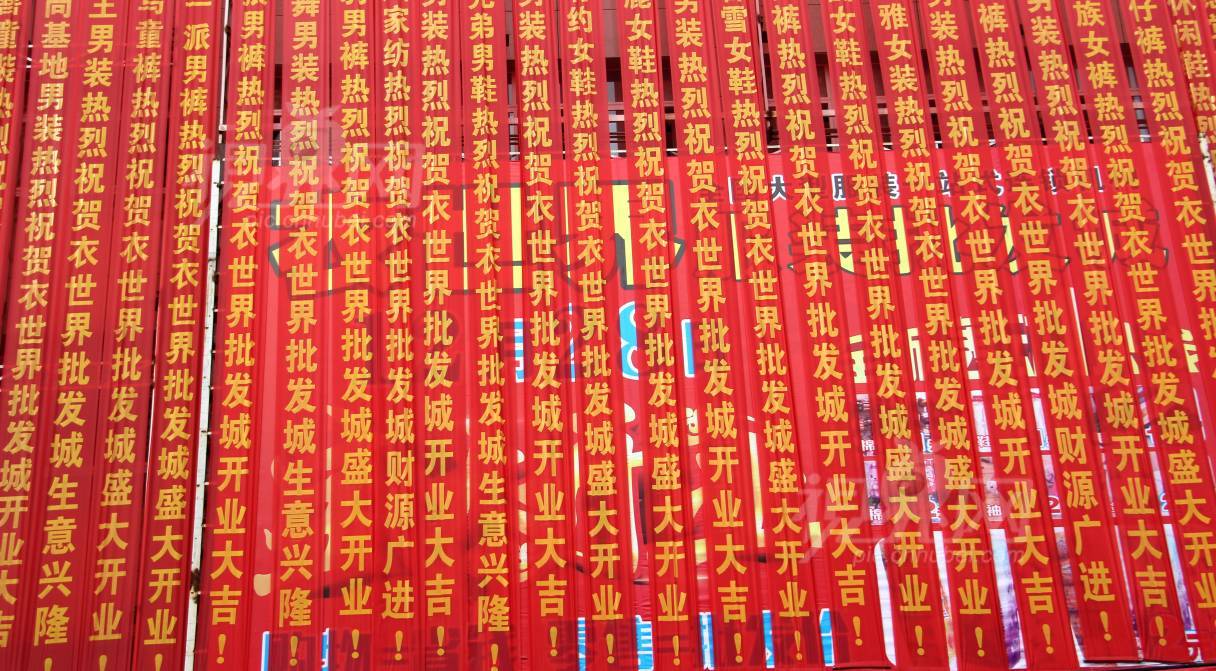 尚基地男装热烈祝贺衣世界批发城开业大吉
男装热烈祝贺衣世界批发城生意兴隆！
童裤热烈祝贺衣世界批发城盛大开业！
派男裤热烈祝贺衣世界批发城盛大开业！
男裤热烈祝贺衣世界批发城开业大吉！
舞男装热烈祝贺衣世界批发城生意兴隆！
男裤热烈祝贺衣世界批发城盛大开业！
家纺热烈祝贺衣世界批发城财源广进！
男装热烈祝贺衣世界批发城开业大吉！
兄弟男鞋热烈祝贺衣世界批发城生意兴隆！
男装热烈祝贺衣世界批发城开业大吉！
约女鞋热烈祝贺衣世界批发城盛大开业！
女鞋热烈祝贺衣世界批发城盛大开业！
男装热烈祝贺衣世界批发城开业大吉！
雪女鞋热烈祝贺衣世界批发城盛大开业！
裤热烈祝贺衣世界批发城开业大吉！
女鞋热烈祝贺衣世界批发城盛大开业！
雅女装热烈祝贺衣世界批发城盛大开业！
男装热烈祝贺衣世界批发城开业大吉！
裤热烈祝贺衣世界批发城财源广进！
男装热烈祝贺衣世界批发城开业大吉！
族女裤热烈祝贺衣世界批发城盛大开业
仔裤热烈祝贺衣世界
休闲鞋热